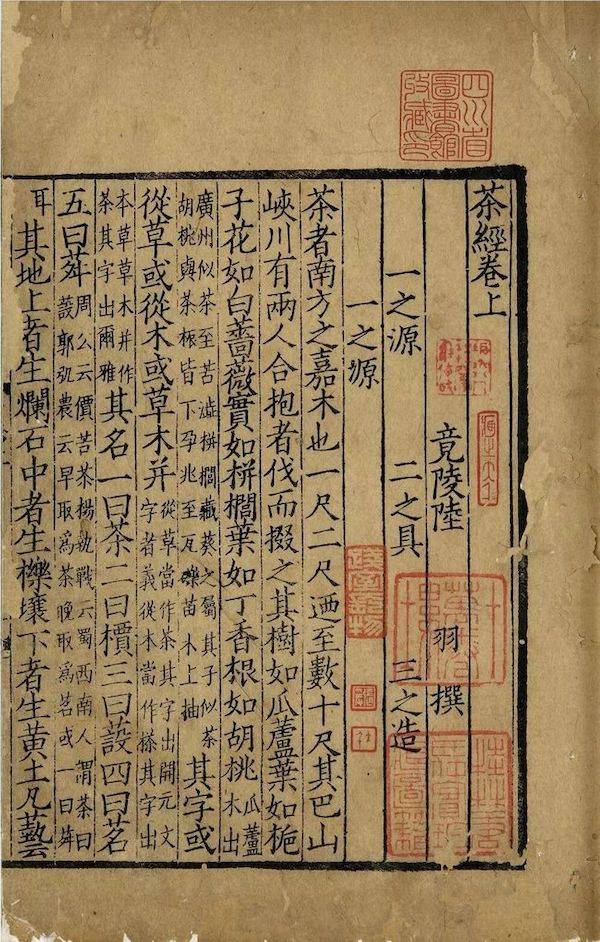 四川省
圖書館
收藏印
茶經卷上
竟陵陸 羽 撰
一之源 二之具 三之造
一之源
茶者南方之嘉木也一尺二尺迺至數十尺其巴山
峽川有兩人合抱者伐而掇之其樹如瓜蘆葉如梔
子花如白薔薇實如栟櫚葉如丁香根如胡桃瓜蘆木出
廣州似茶至苦澁栟櫚藏葵之屬其子似茶胡桃與茶根皆下孕兆至瓦礫苗木上抽其字或
從草或從木或草木并從草當作茶其字出開元文字者義從本當作搽其字出
本草草木并作茶其字出爾雅其名一曰茶二曰檟三曰設四曰茗
五曰荈周公云價苦茶楊執戟云蜀西南人謂茶曰設郭弘農云早取爲茶晚取爲茗或一曰荈
耳其地上者生爛石中者生櫟壤下者生黃土凡藝